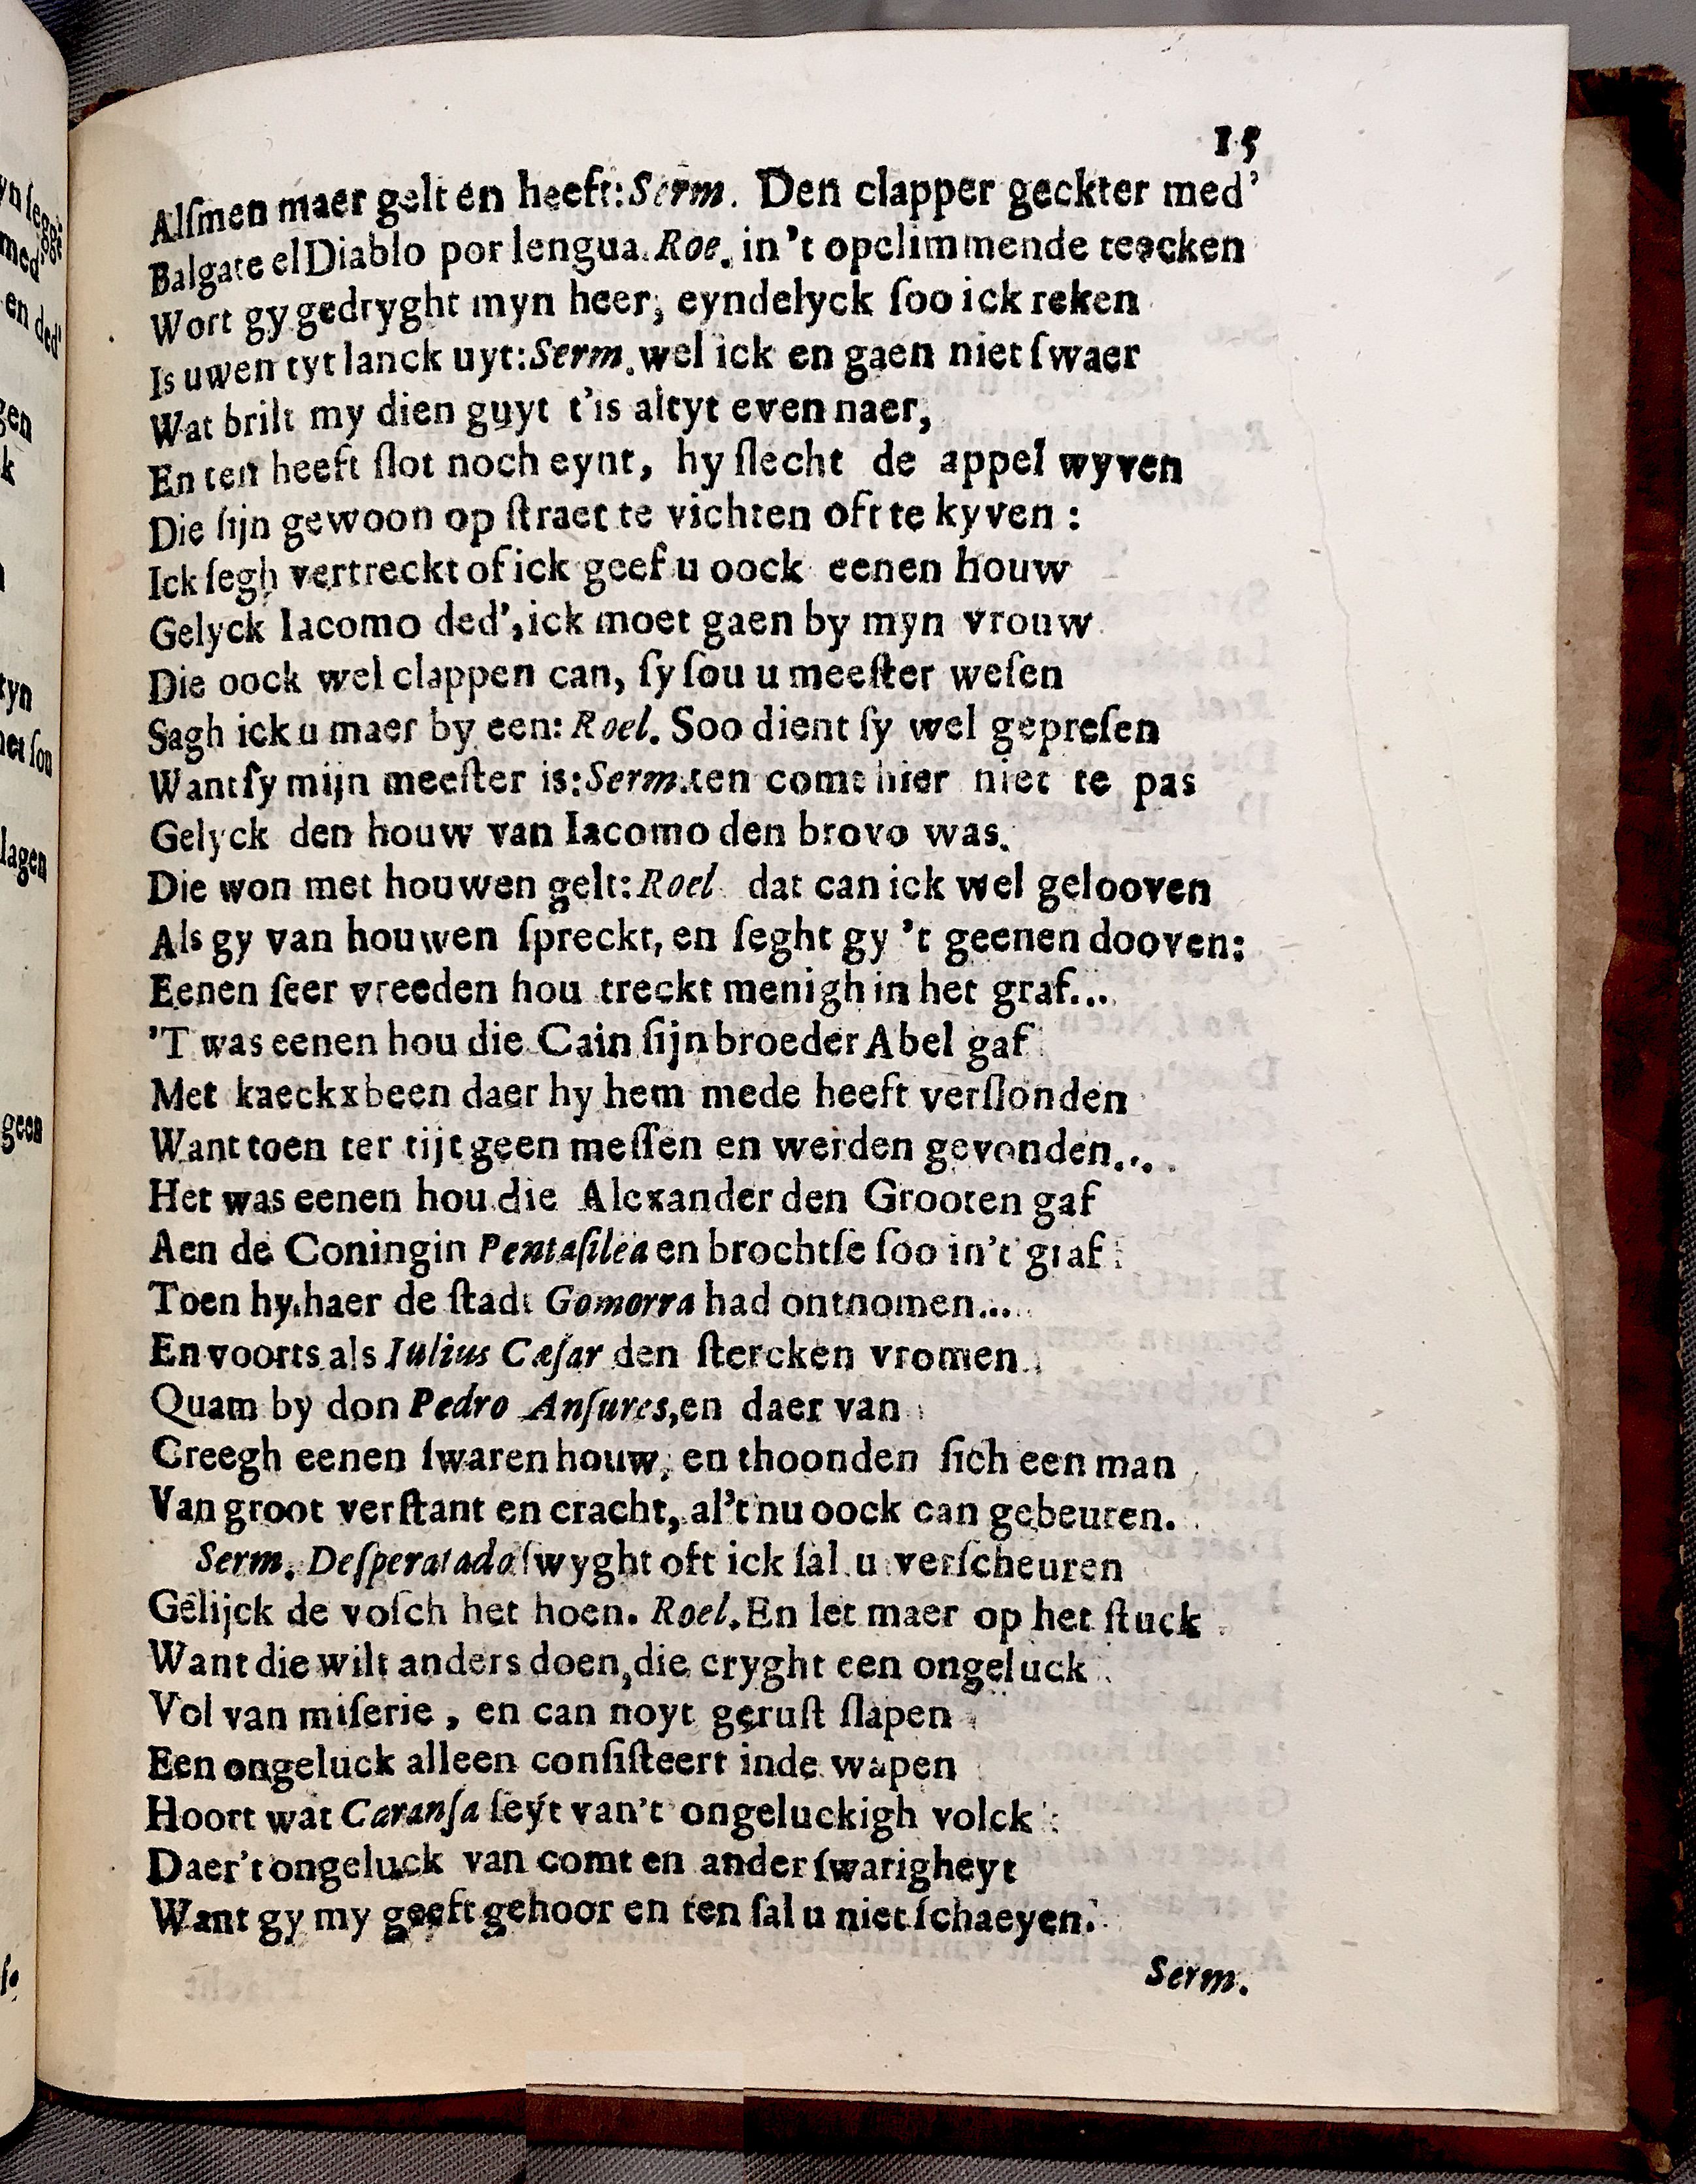 15
Alſmen maer gelt en heeft: Serm. Den clapper geckter med'
Balgate el Diablo por lengua. Roe. in 't opclimmende teecken
Wort gy gedryght myn heer, eyndelyck ſoo ick reken
Is uwen tyt lanck uyt: Serm. wel ick en gaen niet ſwaer
Wat brilt my dien guyt t'is altyt even naer,
En ten heeft ſlot noch eynt, hy ſlecht de appel wyven
Die ſijn gewoon op ſtraet te vichten oft te kyven :
Ick ſegh vertreckt of ick geef u oock eenen houw
Gelyck Iacomo ded', ick moet gaen by myn vrouw
Die oock wel clappen can, ſy ſou u meeſter weſen
Sagh ick u maer by een: Roel. Soo dient ſy wel gepreſen
Want ſy mijn meeſter is: Serm. ten comt hier niet te pas
Gelyck den houw van Iacomo den brovo was.
Die won met houwen gelt: Roel dat can ick wel gelooven
Als gy van houwen ſpreckt, en ſeght gy 't geenen dooven:
Eenen ſeer vreeden hou treckt menigh in het graf...
'T was eenen hou die Cain ſijn broeder Abel gaf
Met kaeckxbeen daer hy hem mede heeft verſlonden
Want toen ter tijt geen meſſen en werden gevonden....
Het was eenen hou die Alexander den Grooten gaf
Aen de Coningin Pentaſilea en brochtſe ſoo in't graf
Toen hy haer de ſtadt Gomorra had ontnomen...
En voorts als Iulius Cæſar den ſtercken vromen
Quam by don Pedro Anſures, en daer van
Creegh eenen ſwaren houw, en thoonden ſich een man
Van groot verſtant en cracht, al't nu oock can gebeuren.
Serm. Deſperatado ſwyght oft ick ſal u verſcheuren
Gelijck de voſch het hoen. Roel. En let maer op het ſtuck
Want die wilt anders doen, die cryght een ongeluck
Vol van miſerie , en can noyt geruſt ſlapen
Een ongeluck alleen conſiſteert inde wapen
Hoort wat Caranſa ſeyt van't ongeluckigh volck
Daer't ongeluck van comt en ander ſwarigheyt
Want gy my geeft gehoor en ten ſal u niet ſchaeyen.
Serm.